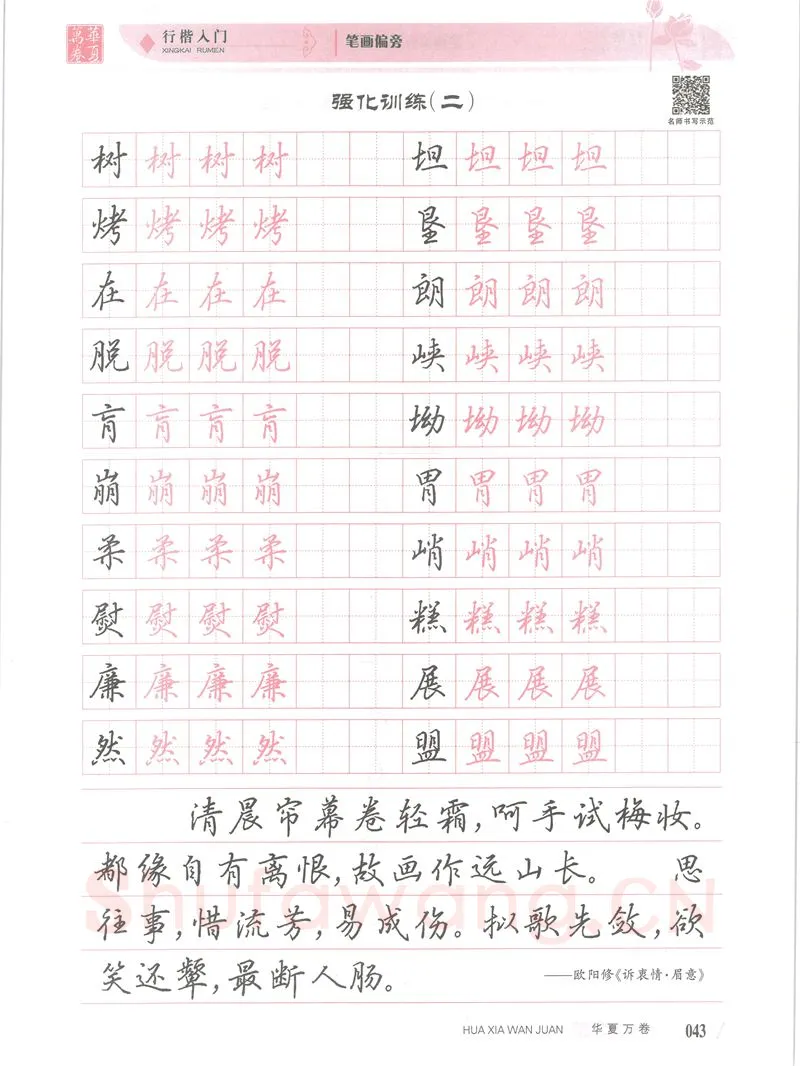 華夏萬卷
行楷入门
XINGKAI RUMEN
笔画偏旁
强化训练(二)
名师书写示范
树树树树 坦坦坦坦
烤烤烤烤 垦垦垦垦
在在在在 朗朗朗朗
脱脱脱脱 峡峡峡峡
肓肓肓肓 坳坳坳坳
崩崩崩崩 胃胃胃胃
柔柔柔柔 峭峭峭峭
熨熨熨熨 糕糕糕糕
廉廉廉廉 展展展展
然然然然 盟盟盟盟
清晨帘幕卷轻霜,呵手试梅妆。
都缘自有离恨,故画作远山长。 思
往事,惜流芳,易成伤。拟歌先敛,欲
笑还颦,最断人肠。
——欧阳修《诉衷情·眉意》
Shufawang.CN
HUA XIA WAN JUAN 华夏万卷 043